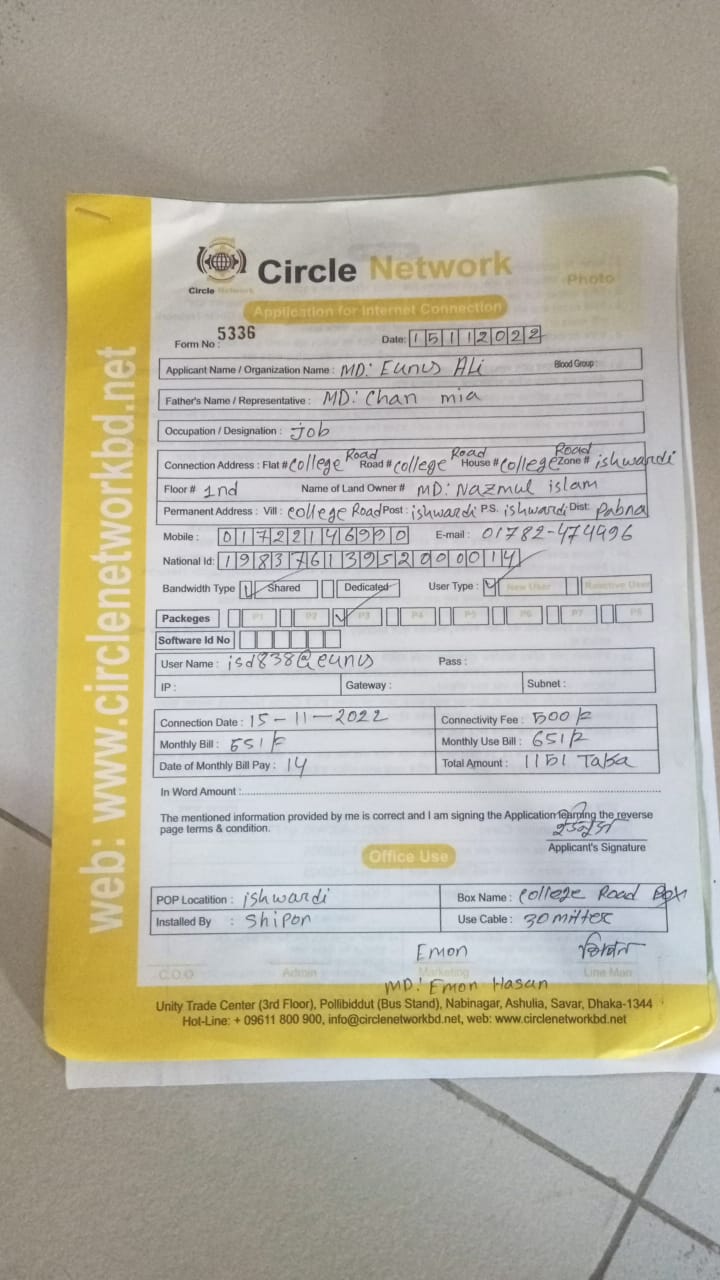 web: www.circlenetworkbd.net
Circle Network
Circle Network
Photo
Application for Internet Connection
Form No : 5336
Date: 15112022
Applicant Name / Organization Name : MD: Eunus Ali Blood Group :
Father's Name / Representative : MD: Chan mia
Occupation / Designation : job
Connection Address : Flat # College Road Road # College Road House # College Road Zone # ishwardi
Floor # 1nd Name of Land Owner # MD: Nazmul islam
Permanent Address : Vill : College Road Post : ishwardi P.S. ishwardi Dist: Pabna
Mobile : 01722146990 E-mail : 01782-474996
National Id: 19837613952000014
Bandwidth Type Shared Dedicated User Type : New User Reactive User
Packeges P1 P2 P3 P4 P5 P6 P7 P8
Software Id No
User Name : isd838@eunus Pass :
IP : Gateway : Subnet :
Connection Date : 15-11-2022 Connectivity Fee : 500/=
Monthly Bill : 651/= Monthly Use Bill : 651/=
Date of Monthly Bill Pay : 14 Total Amount : 1151 Taka
In Word Amount :
The mentioned information provided by me is correct and I am signing the Application the reverse
page terms & condition.
Applicant's Signature
Office Use
POP Locatition : ishwardi Box Name : College Road Box
Installed By : Shipon Use Cable : 30 mitter
Emon
C.O.O Admin Marketing Line Man
MD: Emon Hasan
Unity Trade Center (3rd Floor), Pollibiddut (Bus Stand), Nabinagar, Ashulia, Savar, Dhaka-1344
Hot-Line: + 09611 800 900, info@circlenetworkbd.net, web: www.circlenetworkbd.net